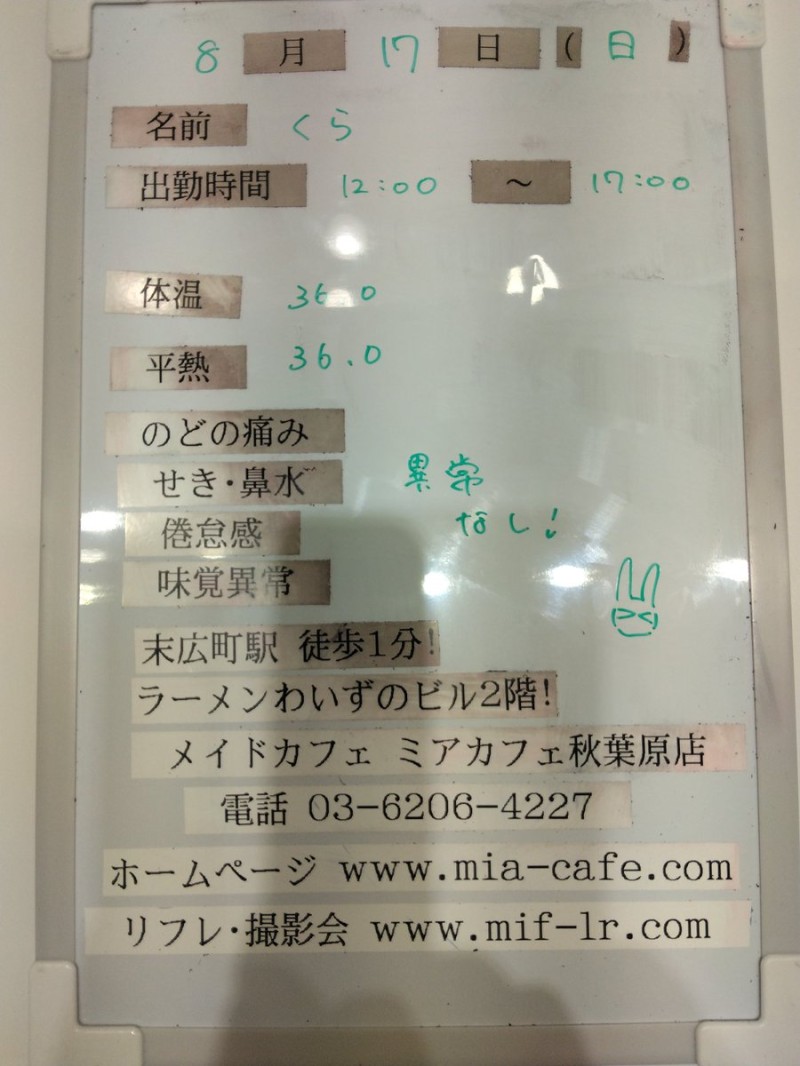 8月17日(日)
名前 くら
出勤時間 12:00 ~ 17:00
体温 36.0
平熱 36.0
のどの痛み
せき・鼻水
異常
倦怠感
なし!
味覚異常
末広町駅 徒歩1分!
ラーメンわいずのビル2階!
メイドカフェ ミアカフェ秋葉原店
電話 03-6206-4227
ホームページ www.mia-cafe.com
リフレ・撮影会 www.mif-lr.com